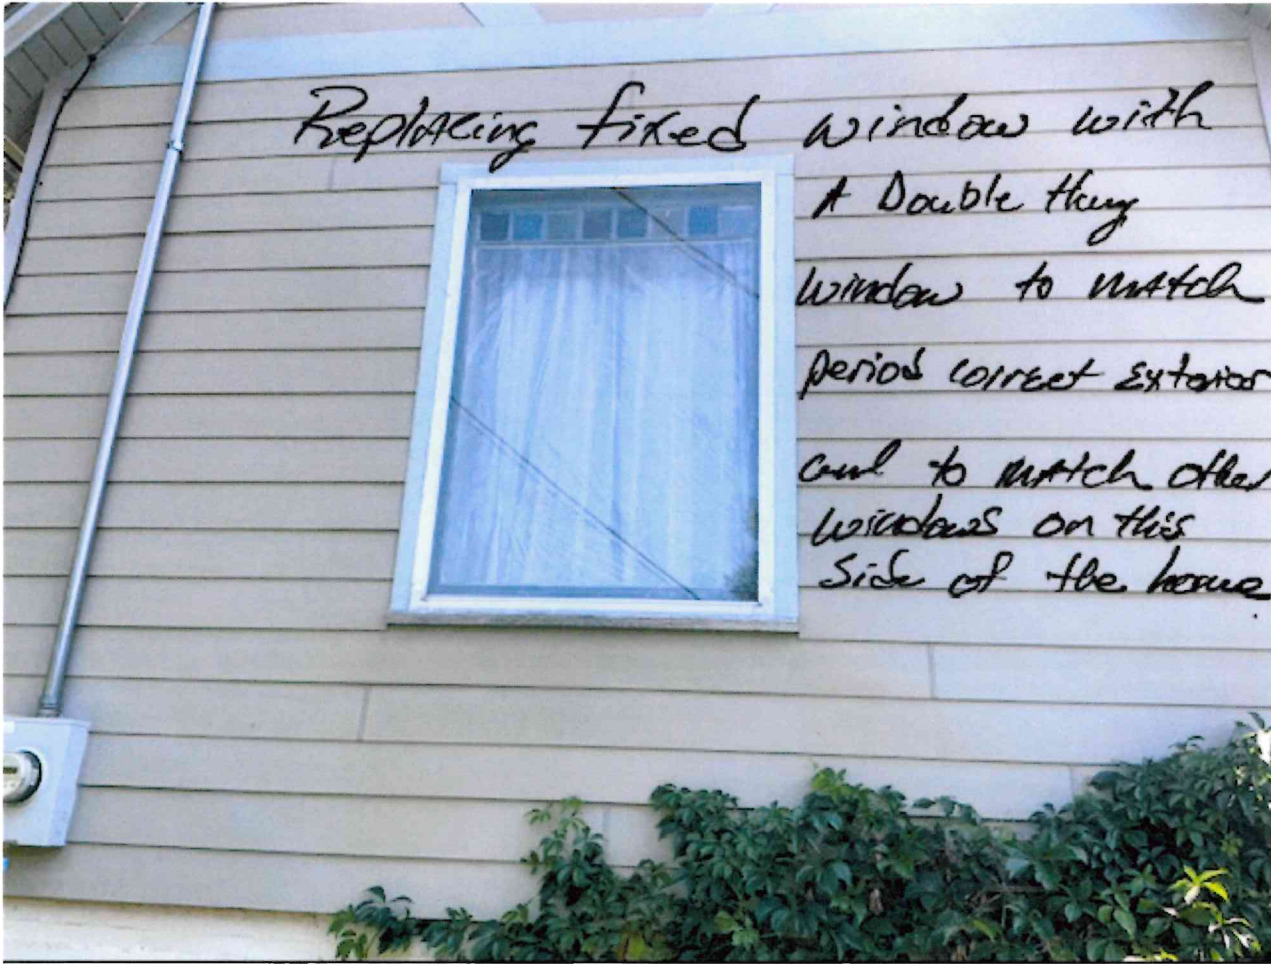 Replacing fixed window with
A Double Hung
window to match
period correct Exterior
and to match other
windows on this
side of the home.